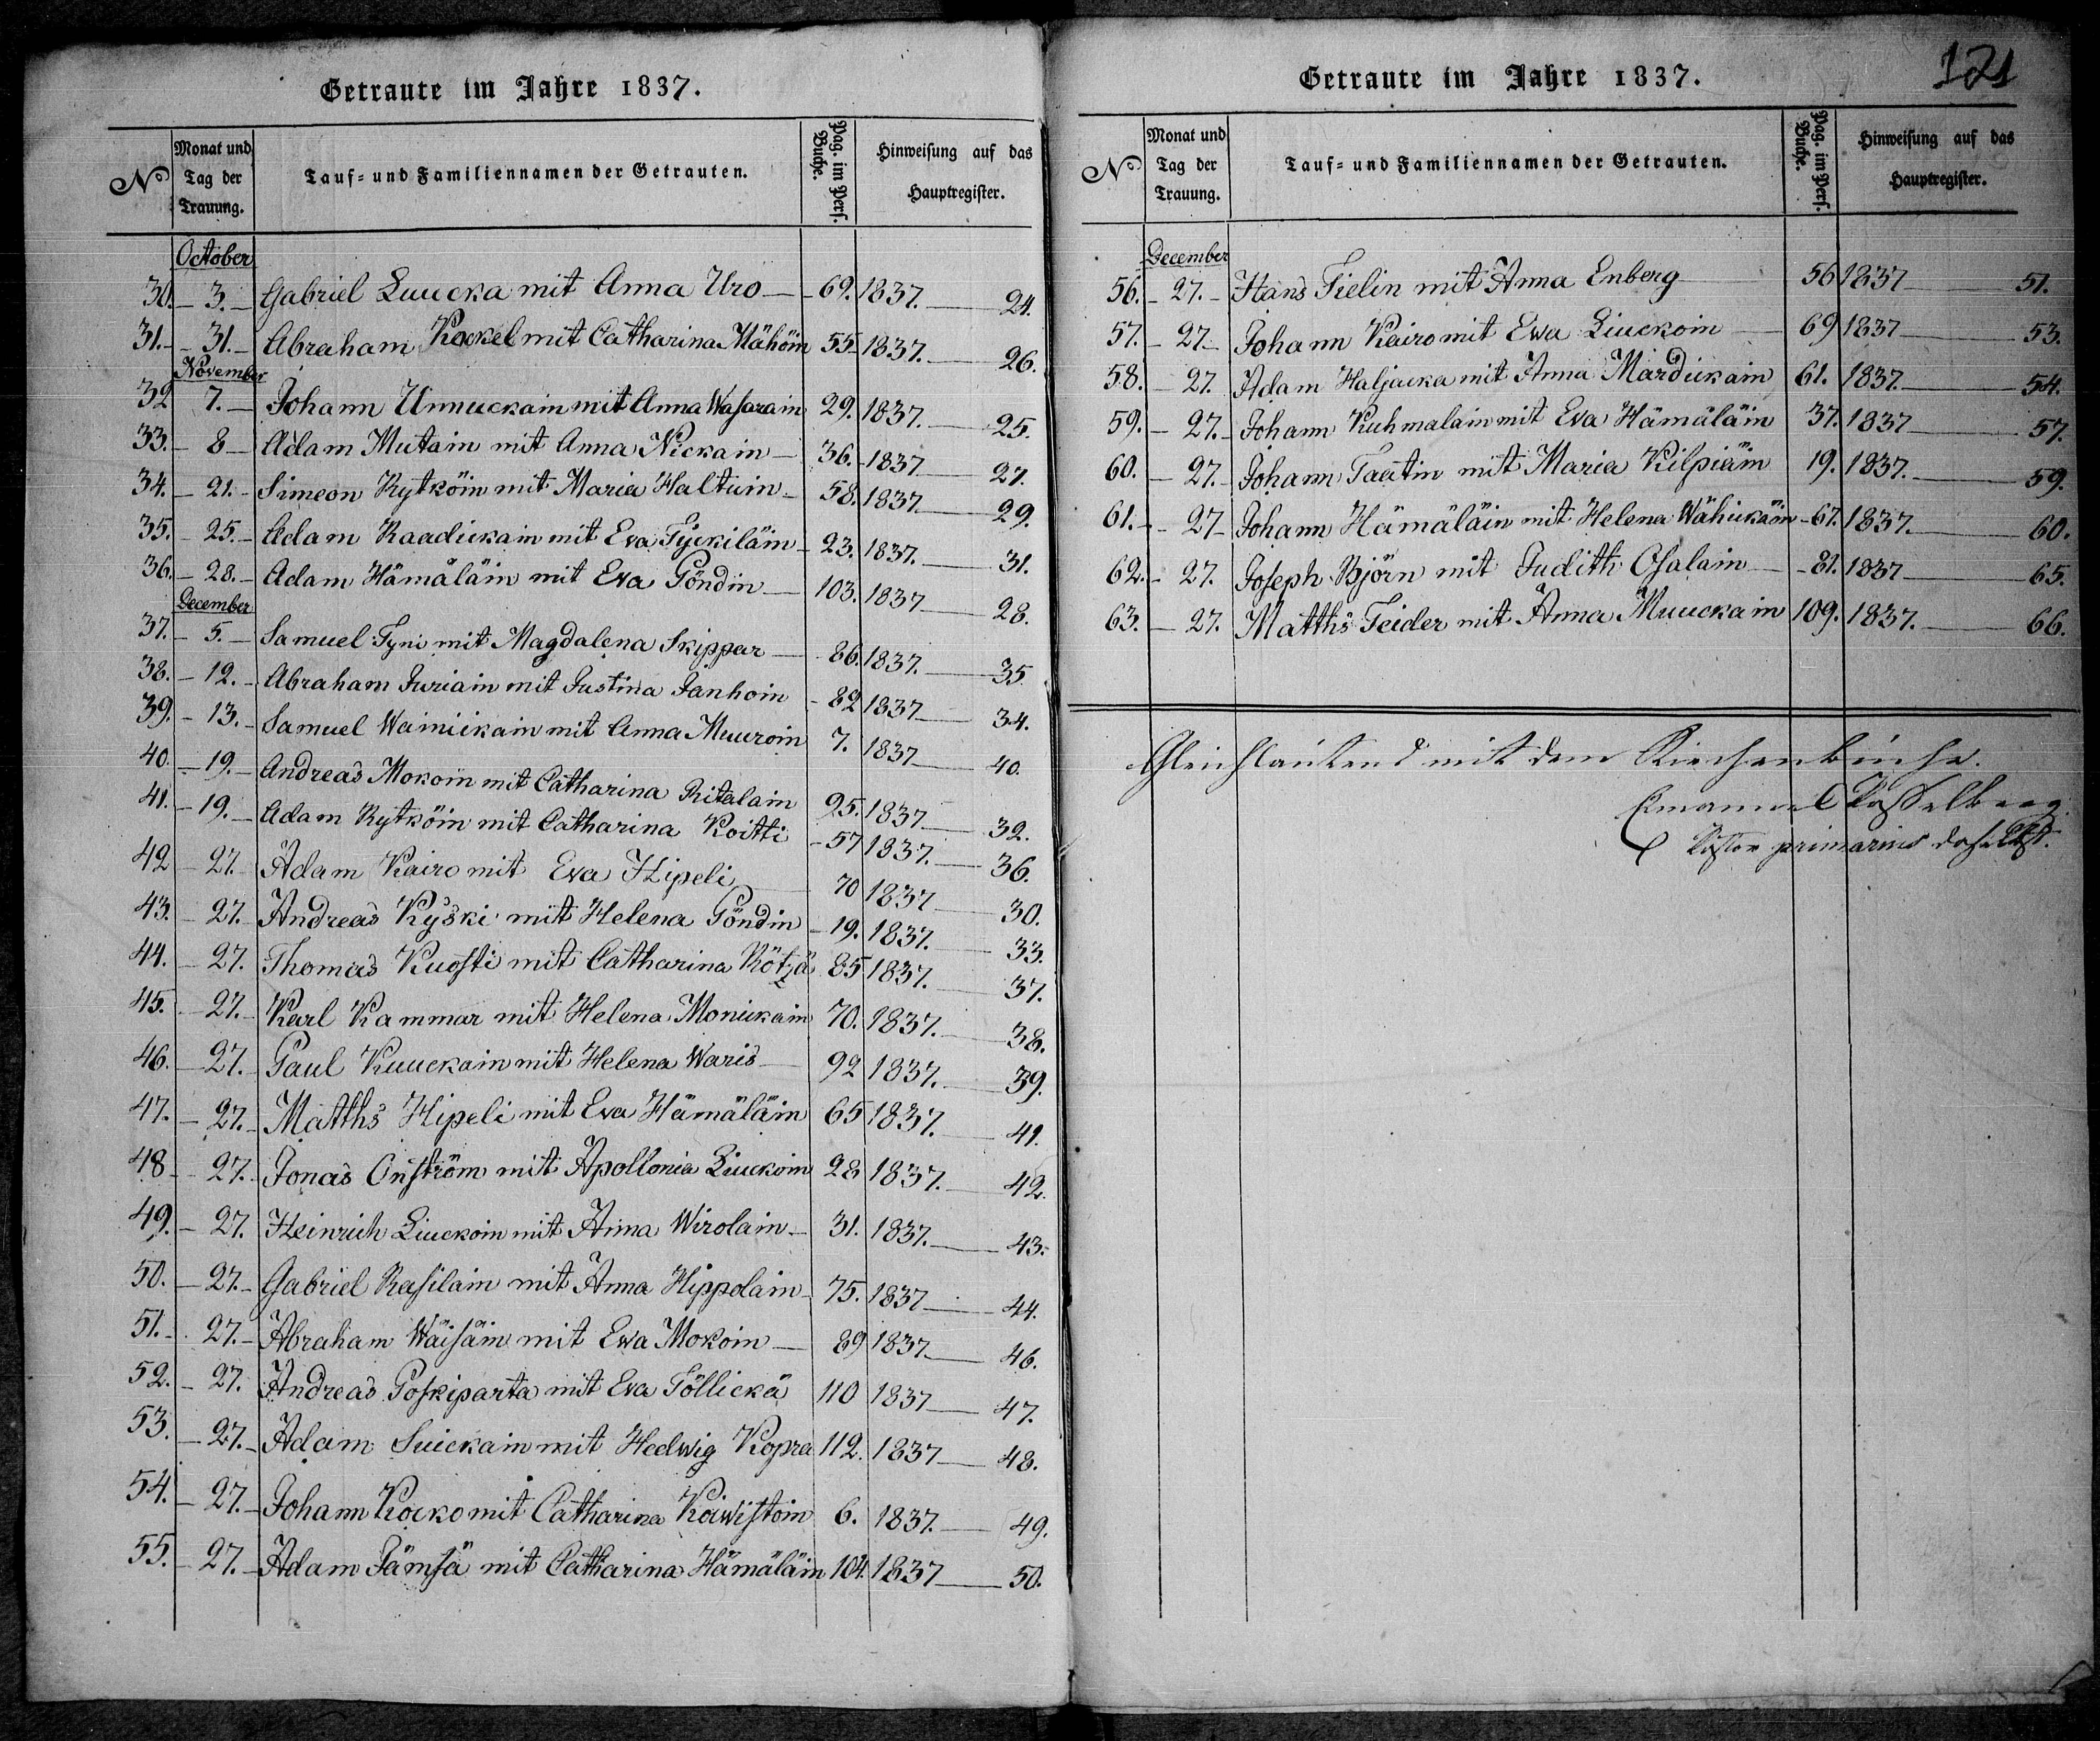 Getraute im Jahre 1837.
N° Monat und Tag der Trauung. Tauf- und Familiennamen der Getrauten. Pag. im Pers. Buche. Hinweisung auf das Hauptregister.
October
30. 3. Gabriel Luucka mit Anna Uro 69. 1837. 24.
31. 31. Abraham Kockel mit Catharina Mähöin 55 1837. 26.
November
32 7. Johann Unnuckain mit Anna Wasarain 29. 1837. 25.
33. 8 Adam Mutain mit Anna Nickain 36. 1837 27.
34. 21. Simeon Rytköin mit Maria Haltuin 58. 1837 29.
35. 25. Adam Raadickain mit Eva Tyckiläin 23. 1837. 31.
36. 28. Adam Hämäläin mit Eva Pöndin 103. 1837 28.
December
37. 5. Samuel Tyni mit Magdalena Skippar 86. 1837. 35
38. 12. Abraham Juriain mit Justina Janhoin 82 1837 34.
39. 13. Samuel Wainickain mit Anna Muuroin 7. 1837 40.
40. 19. Andreas Mokoin mit Catharina Ritalain 95. 1837. 32.
41. 19. Adam Rytköin mit Catharina Koitti 57 1837. 36.
42 27. Adam Kairo mit Eva Hipeli 70 1837 30.
43. 27. Andreas Kyski mit Helena Pöndin 19. 1837. 33.
44. 27. Thomas Kuosti mit Catharina Kötzä 85 1837. 37.
45. 27. Karl Kammar mit Helena Monickain 70. 1837. 38.
46. 27. Paul Kuuckain mit Helena Waris 92 1837. 39.
47. 27. Matths Hipeli mit Eva Hämäläin 65 1837. 41.
48 27. Jonas Onström mit Apollonia Liuckoin 28 1837. 42.
49. 27. Heinrich Liuckoin mit Anna Wirolain 31. 1837. 43.
50. 27. Gabriel Rasilain mit Anna Hippolain 75. 1837 44.
51. 27. Abraham Wäisäin mit Ewa Mokoin 89 1837. 46.
52. 27. Andreas Poskiparta mit Eva Pöllickä 110 1837 47.
53. 27. Adam Suickain mit Hedwig Kopra 112. 1837 48.
54. 27. Johann Kocko mit Catharina Koiwistoin 6. 1837. 49.
55. 27. Adam Jämsä mit Catharina Hämäläin 104. 1837 50.
121
Getraute im Jahre 1837.
N° Monat und Tag der Trauung. Tauf- und Familiennamen der Getrauten. Pag. im Pers. Buche. Hinweisung auf das Hauptregister.
December
56. 27. Hans Fielin mit Anna Enberg 56 1837 51.
57. 27. Johann Kairo mit Ewa Liuckoin 69 1837 53.
58. 27. Adam Haljacka mit Anna Mardickain 61. 1837. 54.
59. 27. Johann Kuhmalain mit Eva Hämäläin 37. 1837 57.
60. 27. Johann Taatin mit Maria Kilpiäin 19. 1837. 59.
61. 27 Johann Hämäläin mit Helena Wähickäin 67. 1837. 60.
62. 27. Joseph Björn mit Judith Osalain 81. 1837 65.
63. 27. Matths Teider mit Anna Muuckain 109. 1837. 66.
Gleichlautend mit dem Kirchenbuche.
Emanuel
Pastor primarius daselbst.